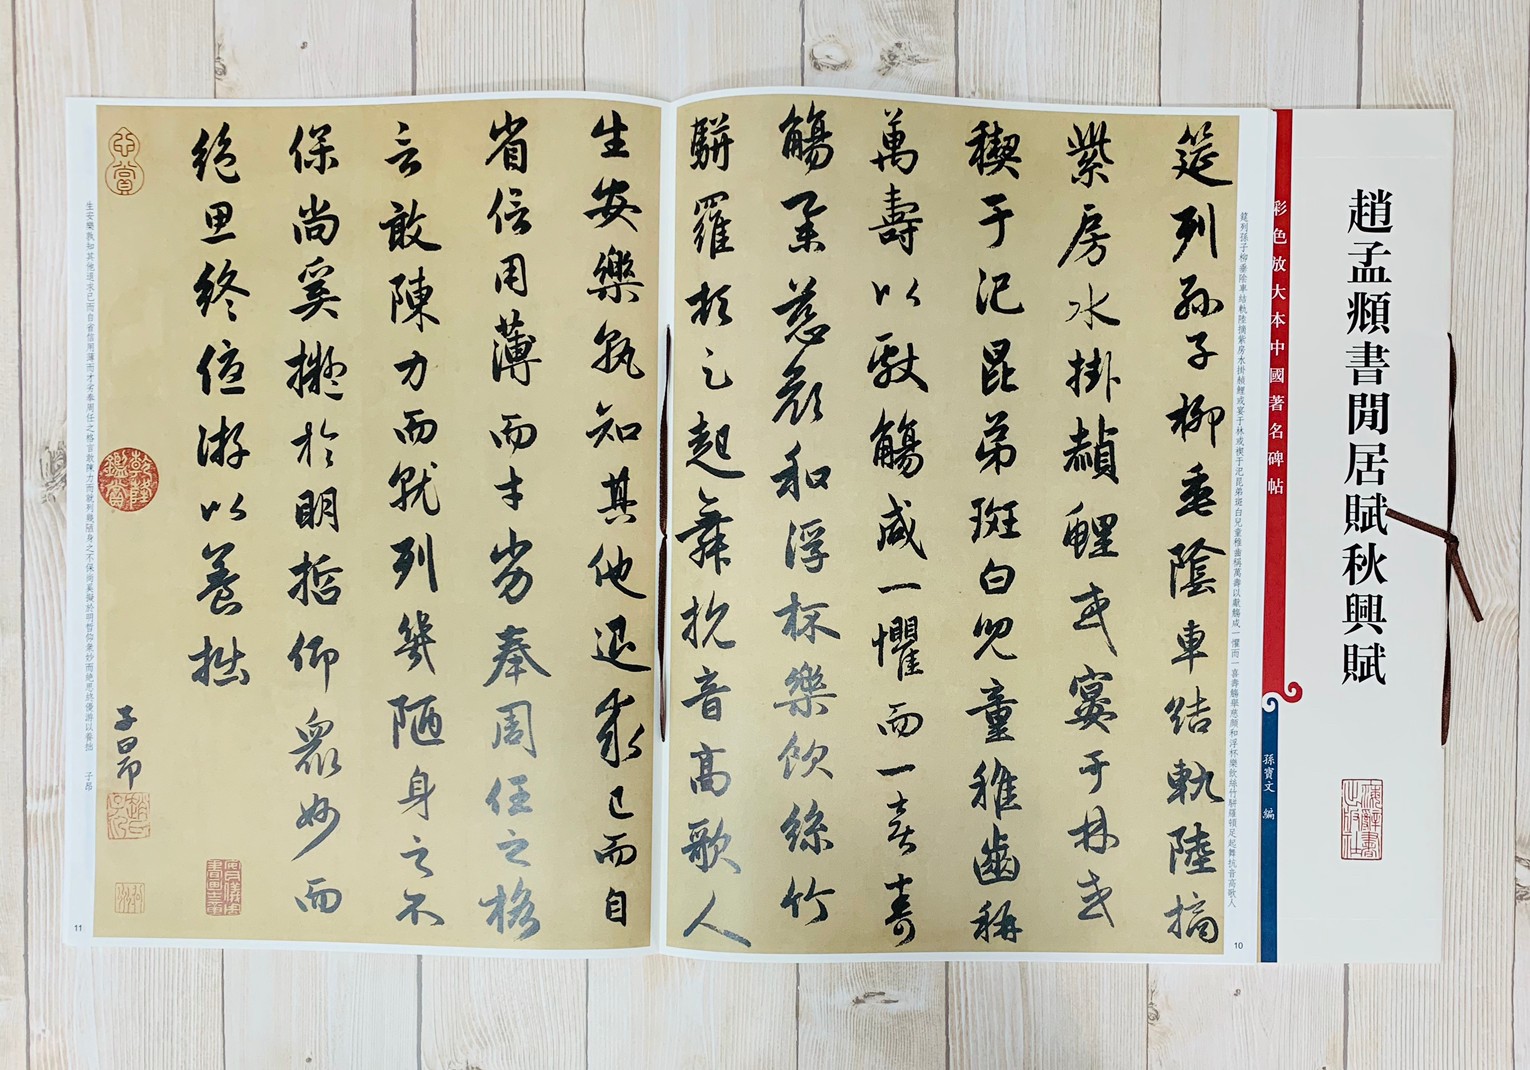 趙孟頫書閒居賦秋興賦
彩色放大本中國著名碑帖
孫寶文 編
筵列孫子柳垂陰車結軌陸摘紫房水掛赬鯉或宴于林或禊于汜昆弟斑白兒童稚齒稱萬壽以獻觴咸一懼而一喜壽觴舉慈顏和浮杯樂飲絲竹駢羅頓足起舞抗音高歌人
筵列孫子柳垂陰車結軌陸摘
紫房水掛赬鯉或宴于林或
禊于汜昆弟斑白兒童稚齒稱
萬壽以獻觴咸一懼而一喜壽
觴舉慈顏和浮杯樂飲絲竹
駢羅頓足起舞抗音高歌人
10
生安樂孰知其他退求己而自
省信用薄而才劣奉周任之格
言敢陳力而就列幾陋身之不
保尚奚擬於明哲仰衆妙而
絕思終優游以養拙
子昂
乾隆鑑賞
生安樂孰知其他退求己而自省信用薄而才劣奉周任之格言敢陳力而就列幾陋身之不保尚奚擬於明哲仰衆妙而絕思終優游以養拙 子昂
11